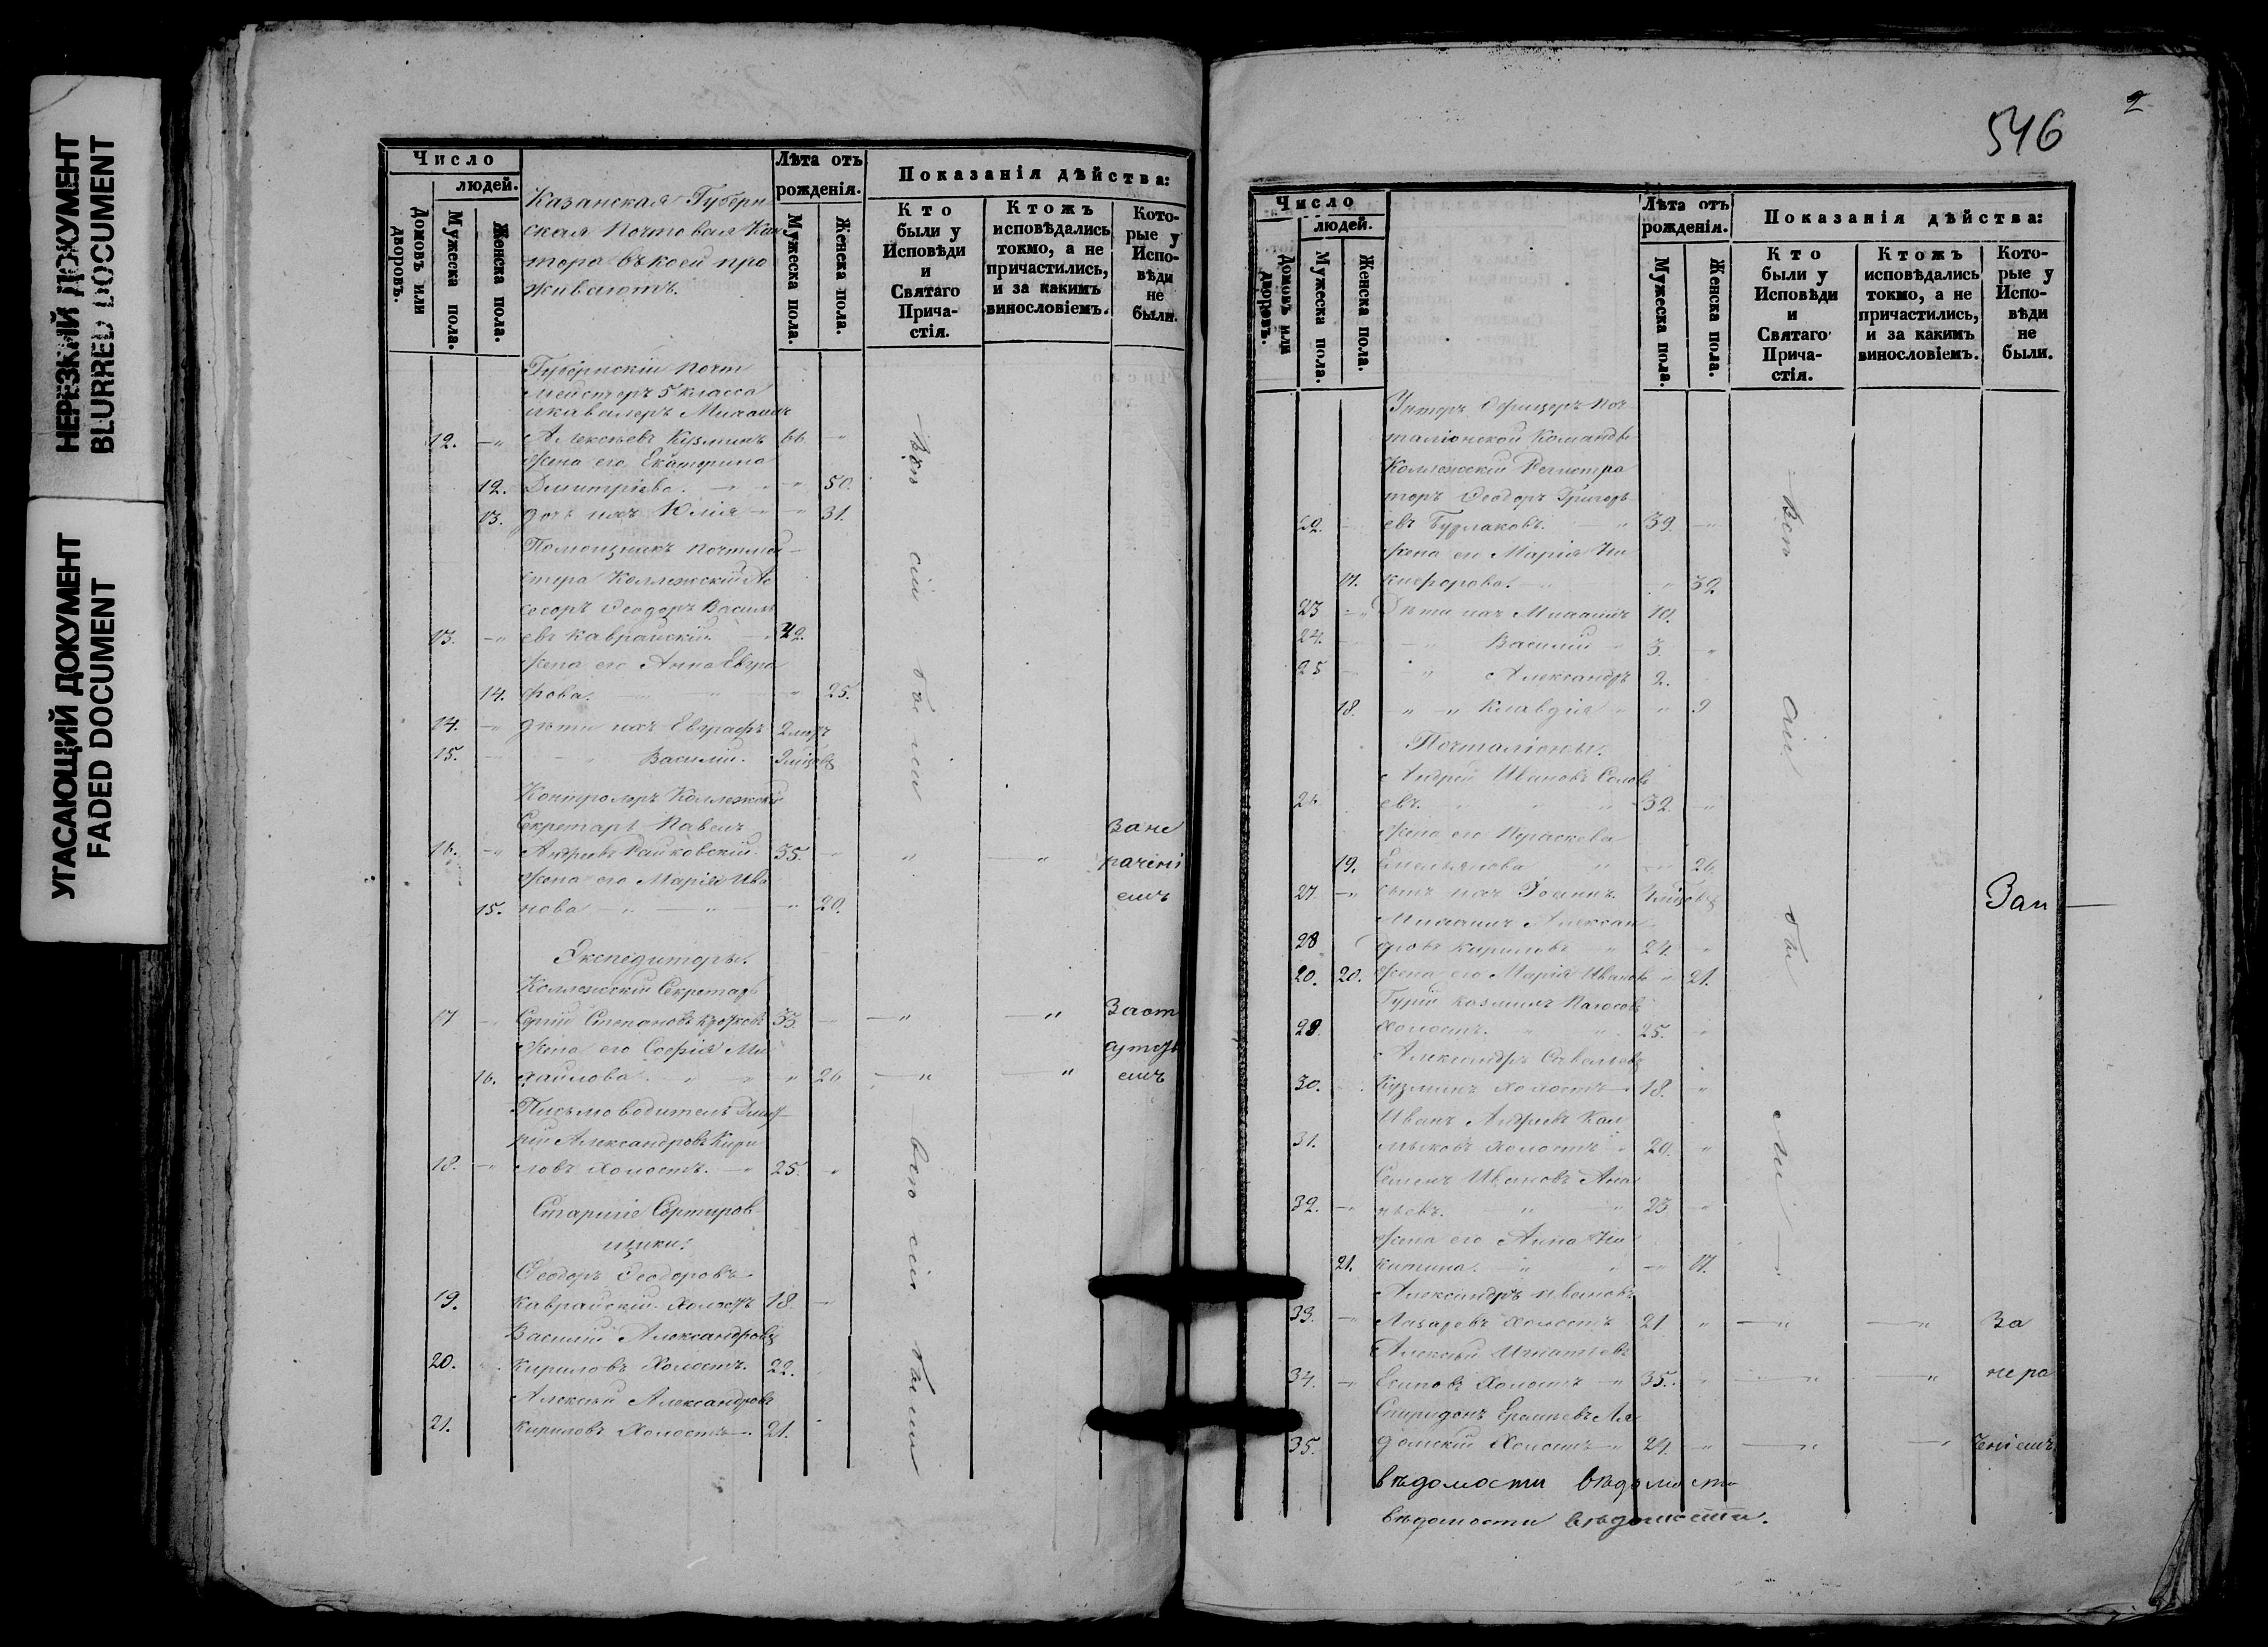 НЕРЕЗКИЙ ДОКУМЕНТ
BLURRED DOCUMENT
УГАСАЮЩИЙ ДОКУМЕНТ
FADED DOCUMENT
Число
людей.
Домовъ или дворовъ.
Мужеска пола.
Женска пола.
Казанская Губерн
ская Почтовая Кон
тора въ коей про
живаютъ.
Лѣта отъ
рожденія.
Мужеска пола.
Женска пола.
Показанія дѣйства:
Кто
были у
Исповѣди
и
Святаго
Прича-
стія.
Ктожъ
исповѣдались
токмо, а не
причастились,
и за какимъ
винословіемъ.
Кото-
рые у
Испо-
вѣди
не
были.
Губернскій Почт
мейстеръ 5 класса
и кавалеръ Михаилъ
12. Алексѣевъ Кузминъ 66
жена его Екатерина
12. Димитріева. 50.
13. дочь ихъ Юлія 31.
Помощникъ почтмей
стера Коллежскій Ас
сесоръ Ѳеодоръ Василь
13. евъ Каврайскій 42.
жена его Анна Евгра
14. фова. 25.
14. дѣти ихъ Евграфъ 2 лѣтъ
15. Василій.
Контролеръ Коллежскій
Секретарь Павелъ
16. Андреевъ Райковскій. 35.
жена его Марія Ива
15. нова 20.
За не
раченi
емъ
Экспедиторы.
Коллежскій Секретарь
17 Сергій Степановъ Крожковъ 33.
жена его Софія Ми
16. хайлова. 26
За от
сутств
емъ
Письмоводитель Димит
рій Александровъ Кири
18. ловъ холостъ. 25.
Старшіе Сортиров
щики.
Ѳеодоръ Ѳеодоровъ
19. Каврайскій холостъ 18.
Василій Александровъ
20. Кириловъ Холостъ. 22.
Алексѣй Александровъ
21. Кириловъ Холостъ 21.
Всѣ сіи были
Всѣ сіи были
2
546
Число
людей.
Домовъ или дворовъ.
Мужеска пола.
Женска пола.
Лѣта отъ
рожденія.
Мужеска пола.
Женска пола.
Показанія дѣйства:
Кто
были у
Исповѣди
и
Святаго
Прича-
стія.
Ктожъ
исповѣдались
токмо, а не
причастились,
и за какимъ
винословіемъ.
Кото-
рые у
Испо-
вѣди
не
были.
Унтеръ Офицеръ поч
таліонской Команды
Коллежскій Регистра
торъ Ѳеодоръ Григорь
22. евъ Бурлаковъ. 39.
жена его Марія Ни
17. кифорова. 32
23 Дѣти ихъ Михаилъ 10.
24. Василій 3.
25 Александръ 2.
18. Клавдія 9
Почталіоны.
Андрей Ивановъ Солов
26 евъ. 32
жена его Праскева
19. Емельянова 26.
27. сынъ ихъ Іоаннъ.
Михаилъ Алексан
28 дровъ Кириловъ 24.
20. 20. жена его Марія Иванов 21.
Гурій Козминъ
29. холостъ. 25.
Александръ Савельевъ
30. Кузминъ холостъ 18.
Иванъ Андреевъ Кал
31. мыковъ холостъ 20.
Семенъ Ивановъ Ана
32. ньевъ. 23
жена его Анна Ни
21. китина. 17.
Александръ Ивановъ
33. Лазаревъ холостъ 21.
Алексѣй Игнатьевъ
34. Есиповъ Холостъ 35.
Спиридонъ
35. Холостъ 24.
Всѣ сіи бы ли
Зап
За
нера
ченіемъ
вѣдомости вѣдомости
вѣдомости вѣдомости.